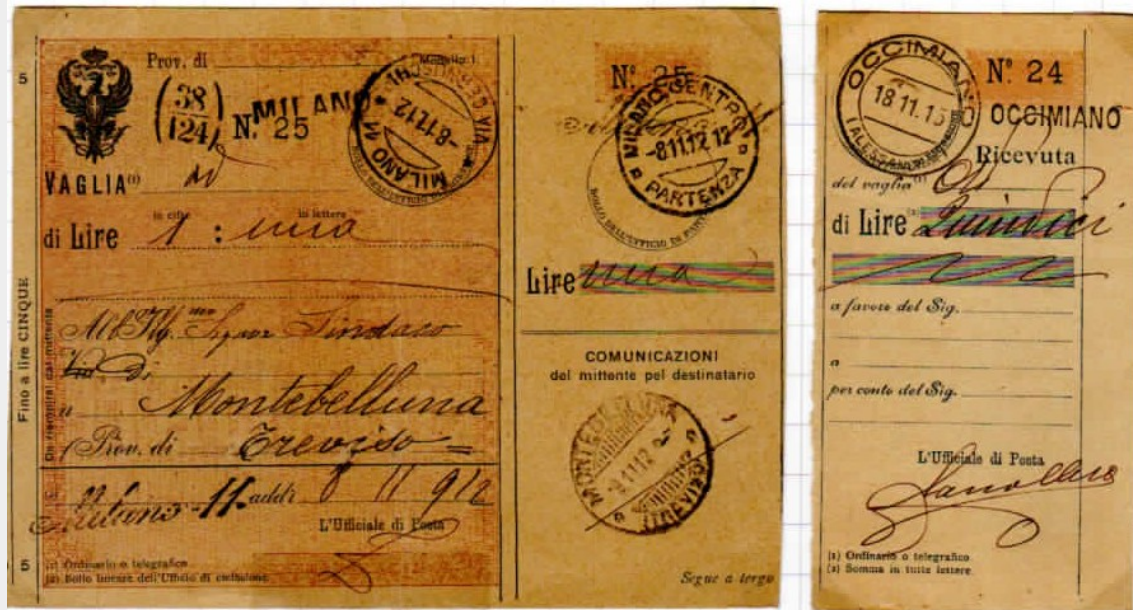 5
Prov. di
Modello 1.
38
124
N. 25
MILANO
MILANO 11
VIA
-8.11.12
VAGLIA (1)
in cifre in lettere
di Lire 1 : una
Fino a lire CINQUE
Da riempirsi dal mittente
All' Ill.mo Signor Sindaco
di
a Montebelluna
(Prov. di Treviso =
Milano - 11. addì 8 11 912
L'Ufficiale di Posta
(1) Ordinario o telegrafico
(2) Bollo lineare dell'Ufficio di emissione.
5
Nº 25
MILANO CENTRO
-8.11.12 12
PARTENZA
BOLLO DELL'UFFICIO DI
Lire una
COMUNICAZIONI
del mittente pel destinatario
MONTEBELLUNA
-9.11.12
(TREVISO)
Segue a tergo
OCCIMIANO
18.11.15
Nº 24
OCCIMIANO
Ricevuta
del vaglia (1)
di Lire (2) Quindici
a favore del Sig.
a
per conto del Sig.
L'Ufficiale di Posta
(1) Ordinario o telegrafico
(2) Somma in tutte lettere.